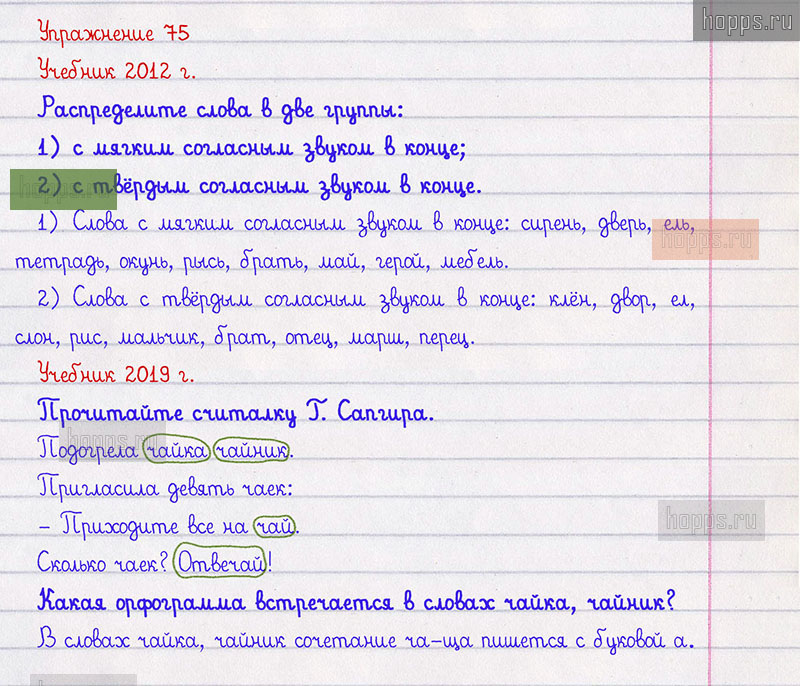 hopps.ru
Упражнение 75
Учебник 2012 г.
Распределите слова в две группы:
1) с мягким согласным звуком в конце;
2) с твёрдым согласным звуком в конце.
hopps.ru
1) Слова с мягким согласным звуком в конце: сирень, дверь, ель,
hopps.ru
тетрадь, окунь, рысь, брать, май, герой, мебель.
2) Слова с твёрдым согласным звуком в конце: клён, двор, ел,
слон, рис, мальчик, брат, отец, марш, перец.
Учебник 2019 г.
Прочитайте считалку Г. Сапгира.
hopps.ru
Подогрела чайка чайник.
Пригласила девять чаек:
– Приходите все на чай.
hopps.ru
Сколько чаек? Отвечай!
Какая орфограмма встречается в словах чайка, чайник?
В словах чайка, чайник сочетание ча-ща пишется с буквой а.